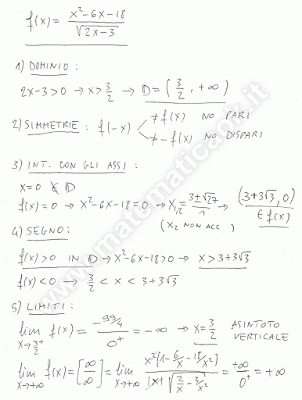 f(x) = x²-6x-18 / √2x-3
1) DOMINIO:
2x-3>0 → x>3/2 → D=(3/2, +∞)
2) SIMMETRIE: f(-x) ≠f(x) NO PARI
≠-f(x) NO DISPARI
3) INT. CON GLI ASSI:
x=0 ∉ D
f(x)=0 → x²-6x-18=0 → x₁,₂ = 3±√27/1 → (3+3√3, 0) ∈ f(x)
(x₂ NON ACC)
4) SEGNO:
f(x)>0 IN D → x²-6x-18>0 → x>3+3√3
f(x)<0 → 3/2 < x < 3+3√3
5) LIMITI:
lim x→3/2⁺ f(x) = -99/4 / 0⁺ = -∞ → x=3/2 ASINTOTO
VERTICALE
lim x→+∞ f(x) = [∞/∞] = lim x→+∞ x²(1-6/x-18/x²) / |x|√2/x-3/x² = +∞/0⁺ = +∞
www.matematicabz.it